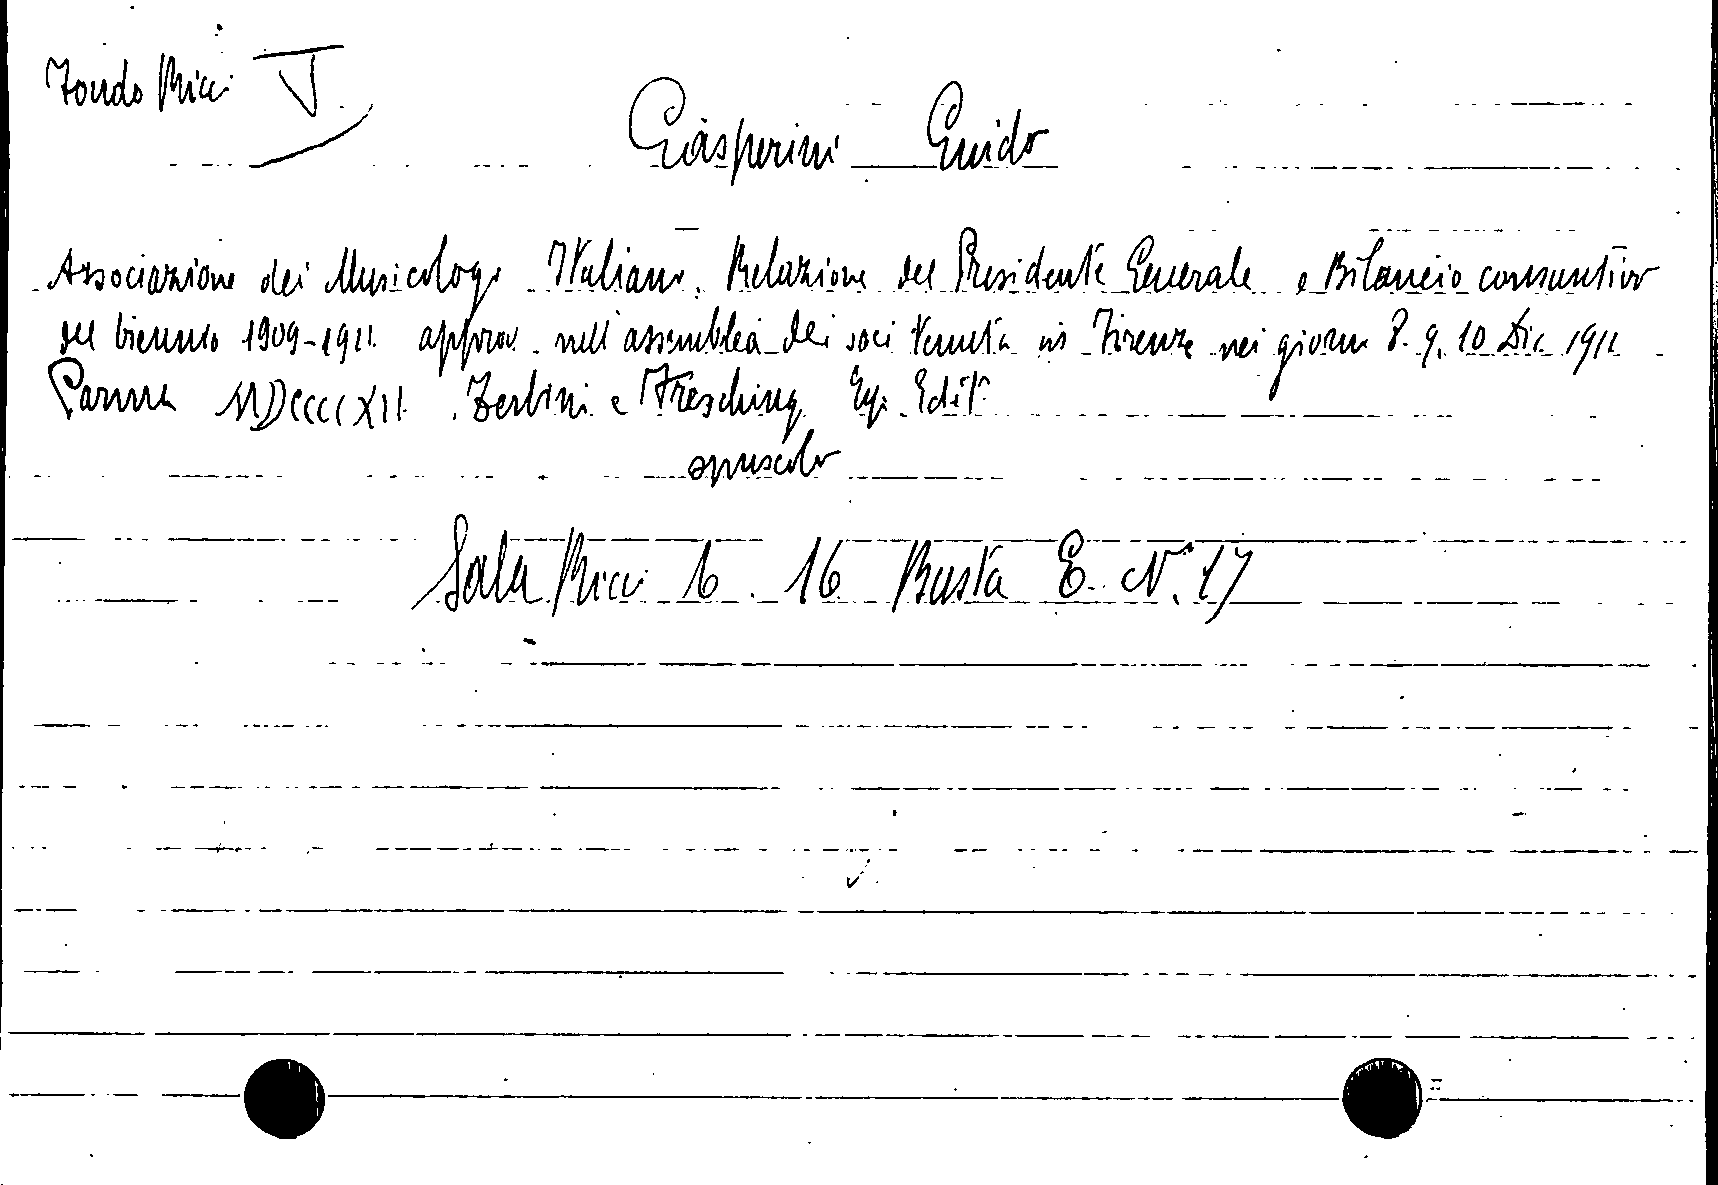 Fondo Ricci V
Gasperini Guido
Associazione dei Musicologi Italiani. Relazione del Presidente Generale e Bilancio consuntivo
del biennio 1909-1911 approv. nell'assemblea dei soci tenuta in Firenze nei giorni 8. 9. 10 Dic 1911
Parma MDCCCCXII. Zerbini e Fresching Edit
opuscolo
Sala Ricci 16 Busta E. N. 17